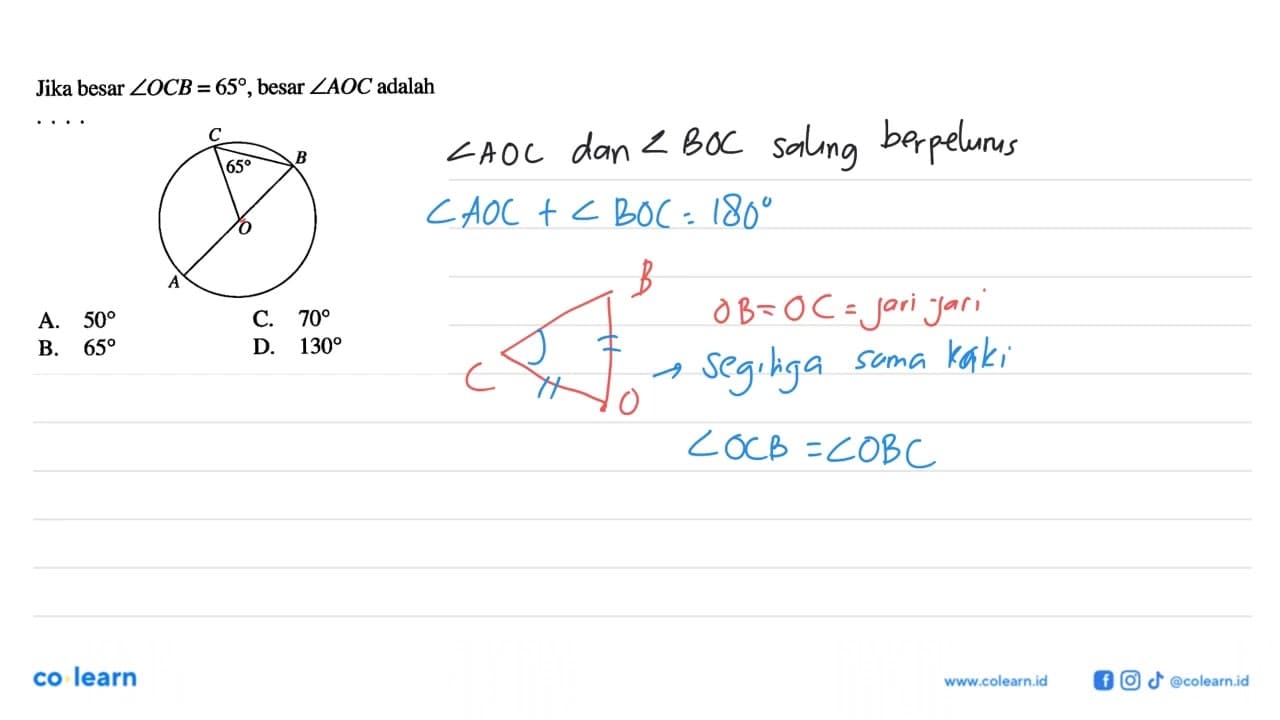 Jika besar ∠OCB = 65°, besar ∠AOC adalah
. . . .
C
B
65°
O
A
A. 50° C. 70°
B. 65° D. 130°
∠AOC dan ∠BOC saling berpelurus
∠AOC + ∠BOC = 180°
B
C
O
OB = OC = jari-jari
→ segitiga sama kaki
∠OCB = ∠OBC
co learn
www.colearn.id @colearn.id